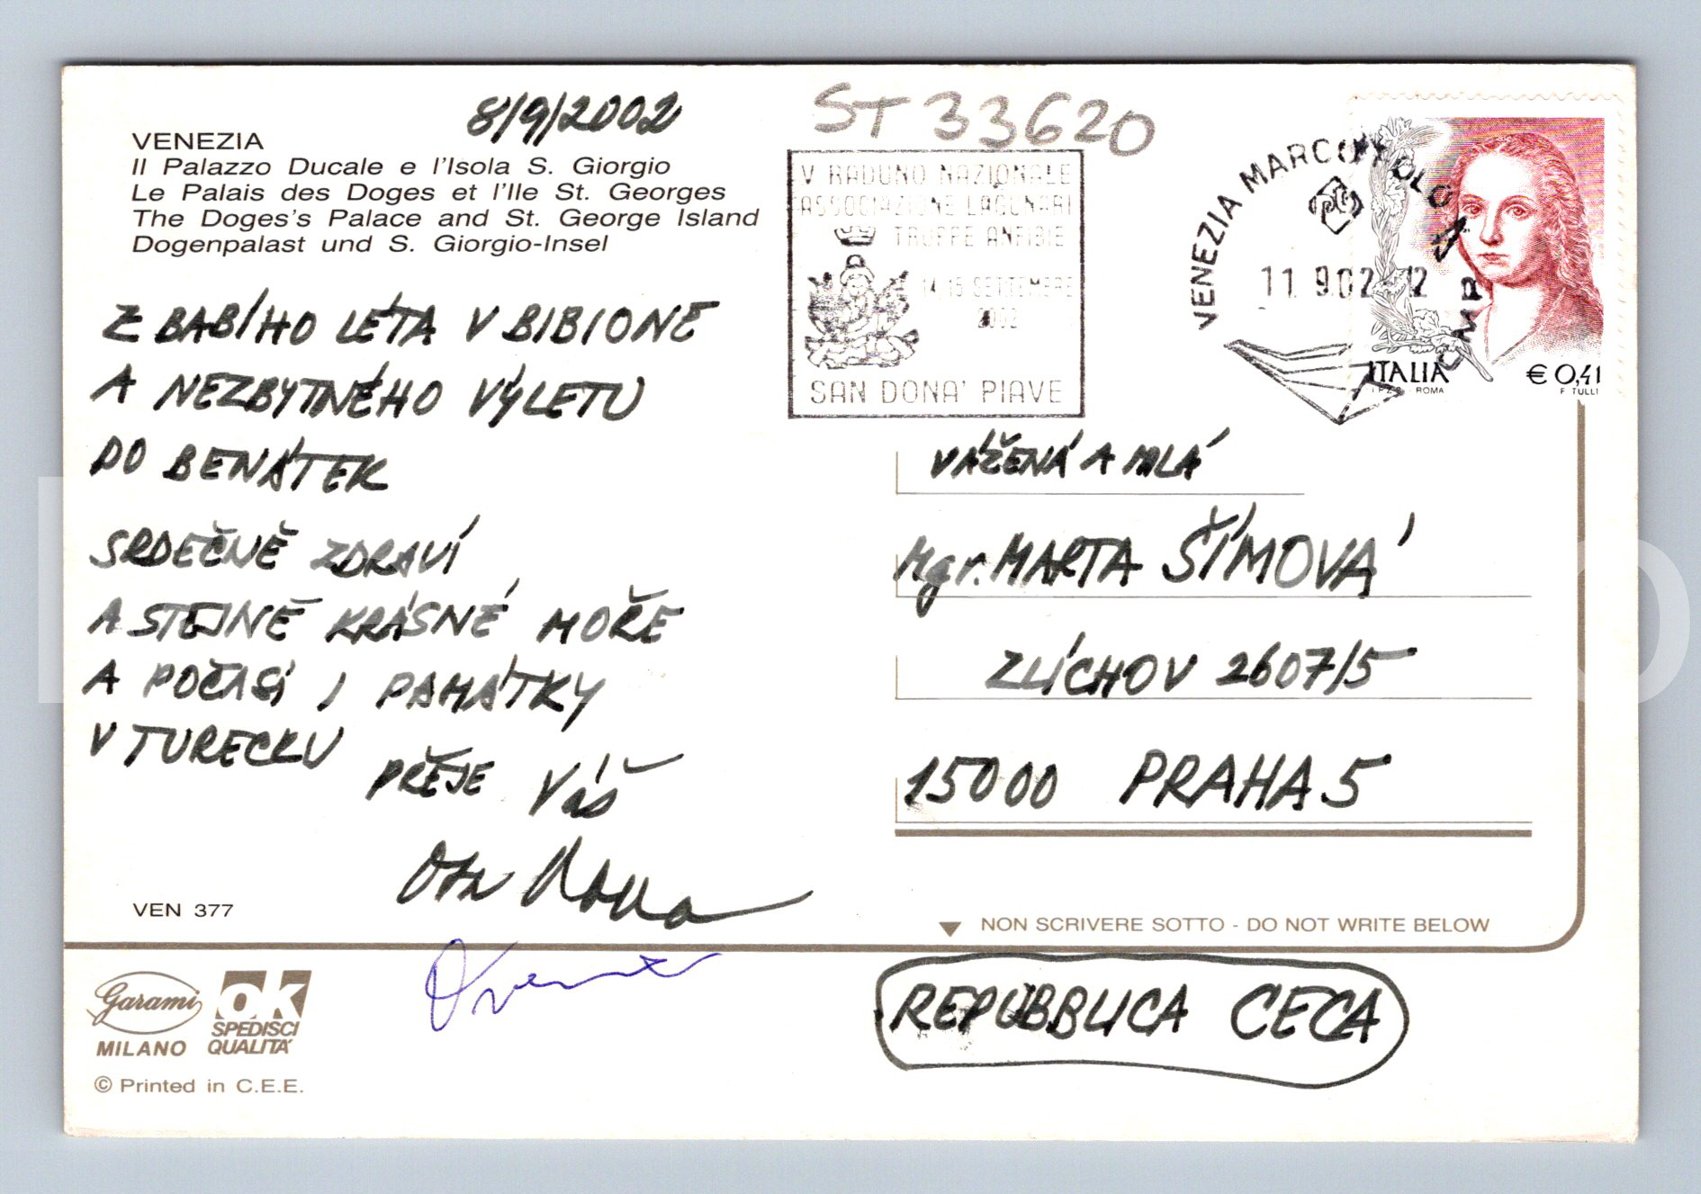 8/9/2002
ST 33620
VENEZIA
Il Palazzo Ducale e l'Isola S. Giorgio
Le Palais des Doges et l'Ile St. Georges
The Doges's Palace and St. George Island
Dogenpalast und S. Giorgio-Insel
V RADUNO NAZIONALE
ASSOCIAZIONE LAGUNARI
TRUPPE ANFIBIE
14 15 SETTEMBRE
2002
SAN DONA' PIAVE
VENEZIA MARCO POLO CMP
11 9.02
ITALIA € 0,41
I.P.Z.S. ROMA F. TULLI
Z BABÍHO LÉTA V BIBIONE
A NEZBYTNÉHO VÝLETU
DO BENÁTEK
SRDEČNĚ ZDRAVÍ
A STEJNĚ KRÁSNÉ MOŘE
A POČASÍ I PAMÁTKY
V TURECKU
PŘEJE Váš
VÁŽENÁ A MILÁ
Mgr. MARTA ŠÍMOVÁ
ZLÍCHOV 2607/5
15000 PRAHA 5
VEN 377
NON SCRIVERE SOTTO - DO NOT WRITE BELOW
REPUBBLICA CECA
Garami
MILANO
OK
SPEDISCI
QUALITA'
© Printed in C.E.E.